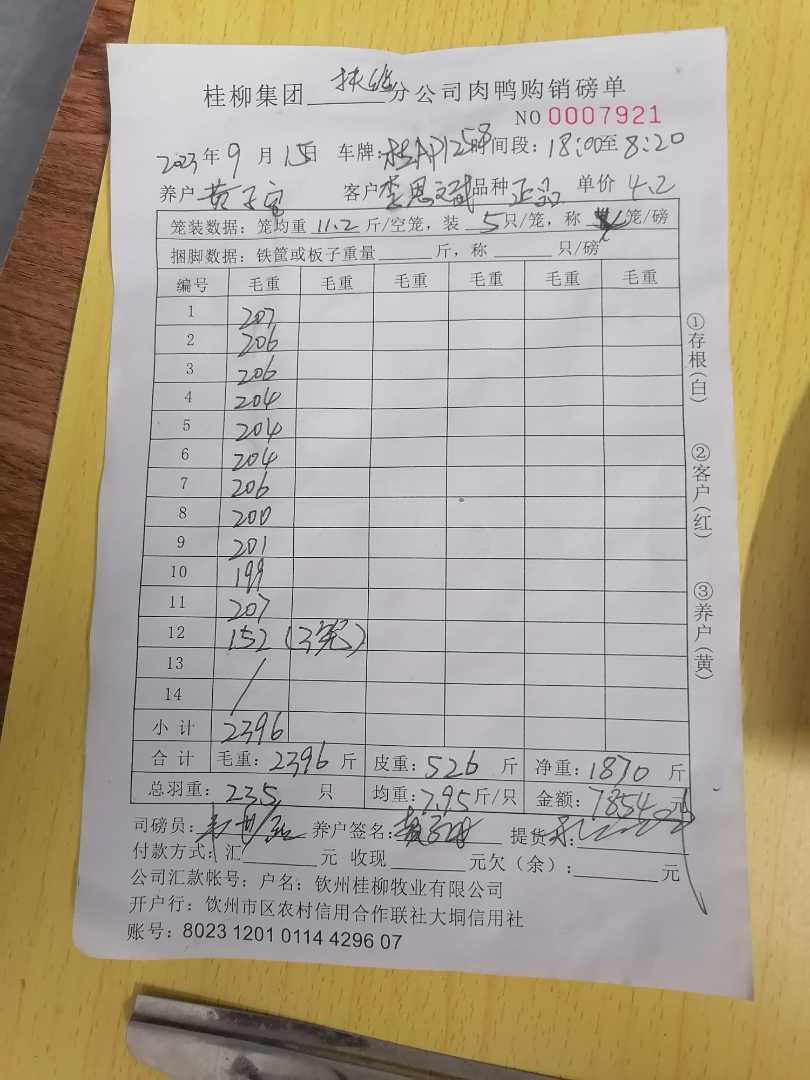 桂柳集团扶绥分公司肉鸭购销磅单
NO 0007921
2023年9月15日 车牌:桂AP1258 时间段:18:00至8:20
养户 黄 客户 李思斌 品种 正品 单价 4.2
笼装数据:笼均重 11.2 斤/空笼,装 5 只/笼,称 笼/磅
捆脚数据:铁筐或板子重量______斤,称______只/磅
编号 毛重 毛重 毛重 毛重 毛重 毛重
1 207
2 206
3 206
4 204
5 204
6 204
7 206
8 200
9 201
10 199
11 207
12 152 (3笼)
13 /
14
小计 2396
合计 毛重:2396斤 皮重:526斤 净重:1870斤
总羽重:235只 均重:7.95斤/只 金额:7854元
司磅员: 养户签名: 提货
付款方式:汇______元 收现______元欠(余):______元
公司汇款帐号:户名:钦州桂柳牧业有限公司
开户行:钦州市区农村信用合作联社大垌信用社
账号:8023 1201 0114 4296 07
①存根(白)
②客户(红)
③养户(黄)